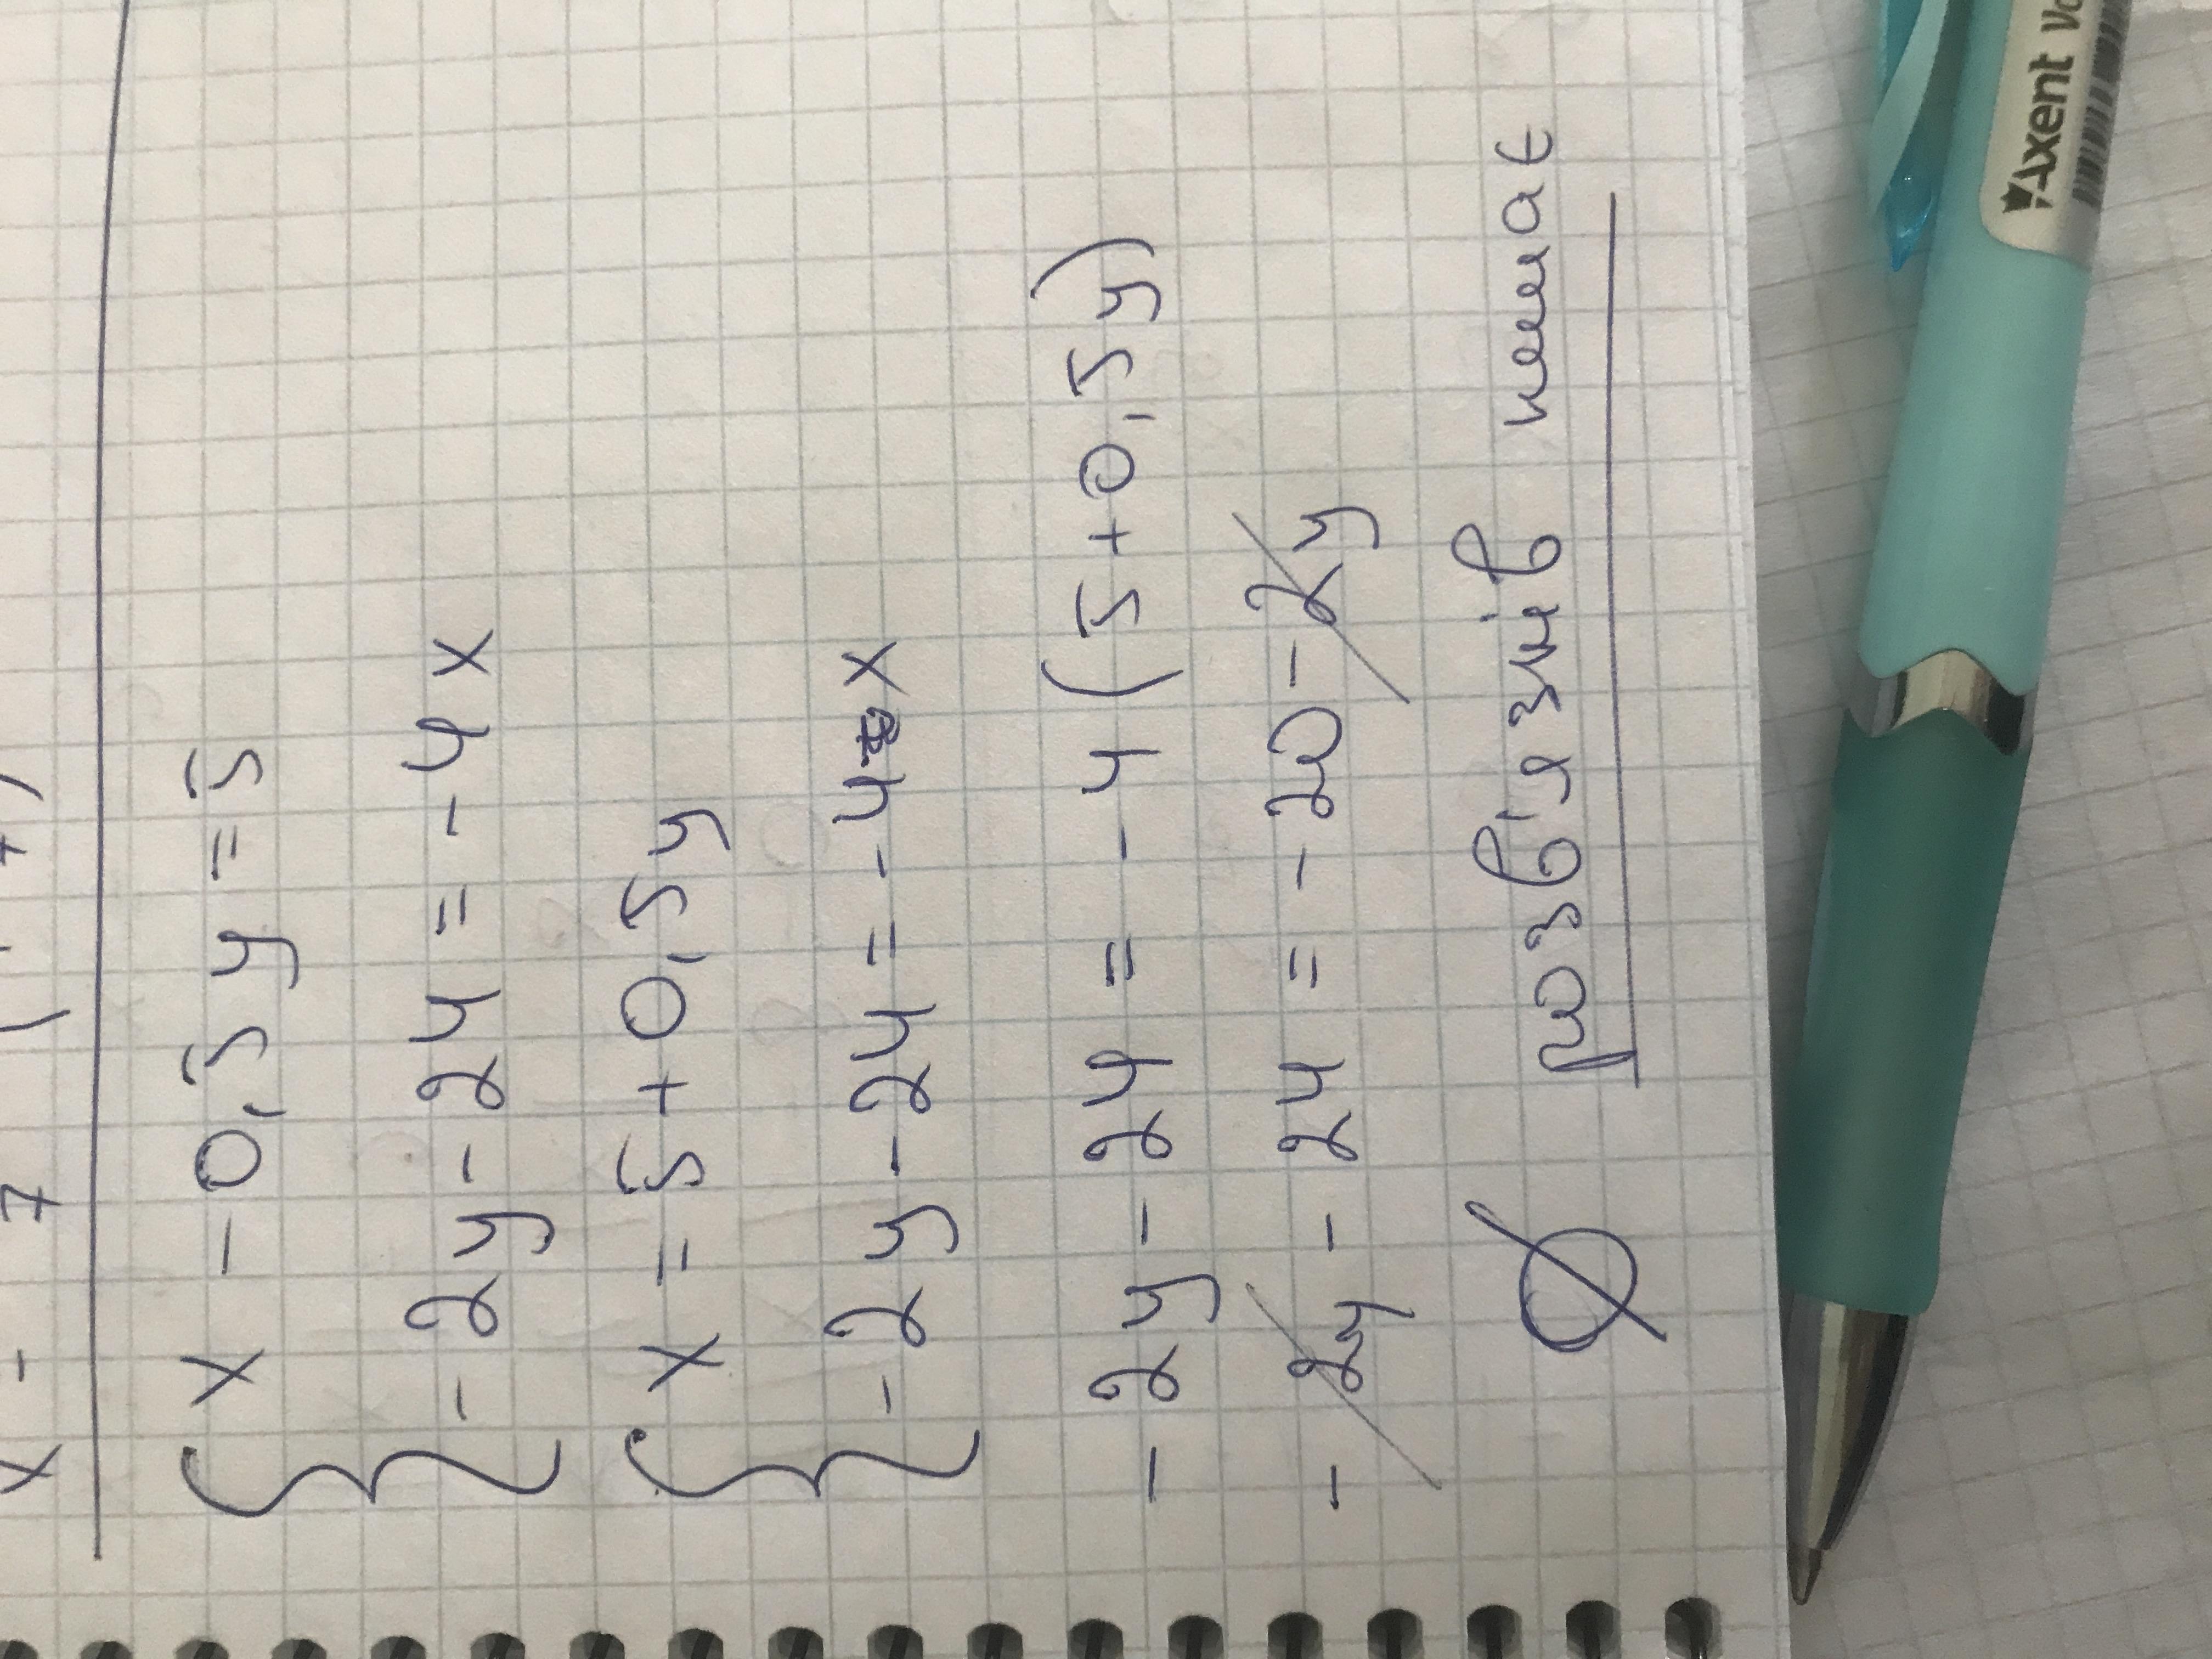 x - 0,5y = 5
- 2y - 24 = - 4x
x = 5 + 0,5y
- 2y - 24 = - 4x
- 2y - 24 = - 4(5 + 0,5y)
- 2y - 24 = - 20 - 2y
∅ розв'язнів немає
Axent